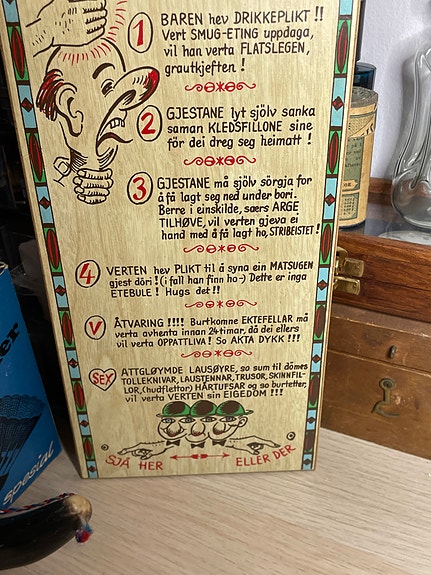 1 BAREN hev DRIKKEPLIKT !!
Vert SMUG-ETING uppdaga,
vil han verta FLATSLEGEN,
grautkjeften !
2 GJESTANE lyt sjölv sanka
saman KLEDSFILLONE sine
för dei dreg seg heimatt !
3 GJESTANE må sjölv sörgja for
å få lagt seg ned under bori.
Berre i einskilde, særs ARGE
TILHØVE, vil verten gjeva ei
hand med å få lagt ho, STRIBEISTET !
4 VERTEN hev PLIKT til å syna ein MATSUGEN
gjest döri ! (i fall han finn ho-) Dette er inga
ETEBULE ! Hugs det !!
V ÅTVARING !!!! Burtkomne EKTEFELLAR må
verta avhenta innan 24 timar, då dei ellers
vil verta OPPATTLIVA ! So AKTA DYKK !!!
SEX ATTGLØYMDE LAUSØYRE, so sum til dömes
TOLLEKNIVAR, LAUSTENNAR, TRUSOR, SKINNFIL-
LOR, (hudflettor) HÅRTUFSAR og so burtetter,
vil verta VERTEN sin EIGEDOM !!!
SJÅ HER ELLER DER
spesial